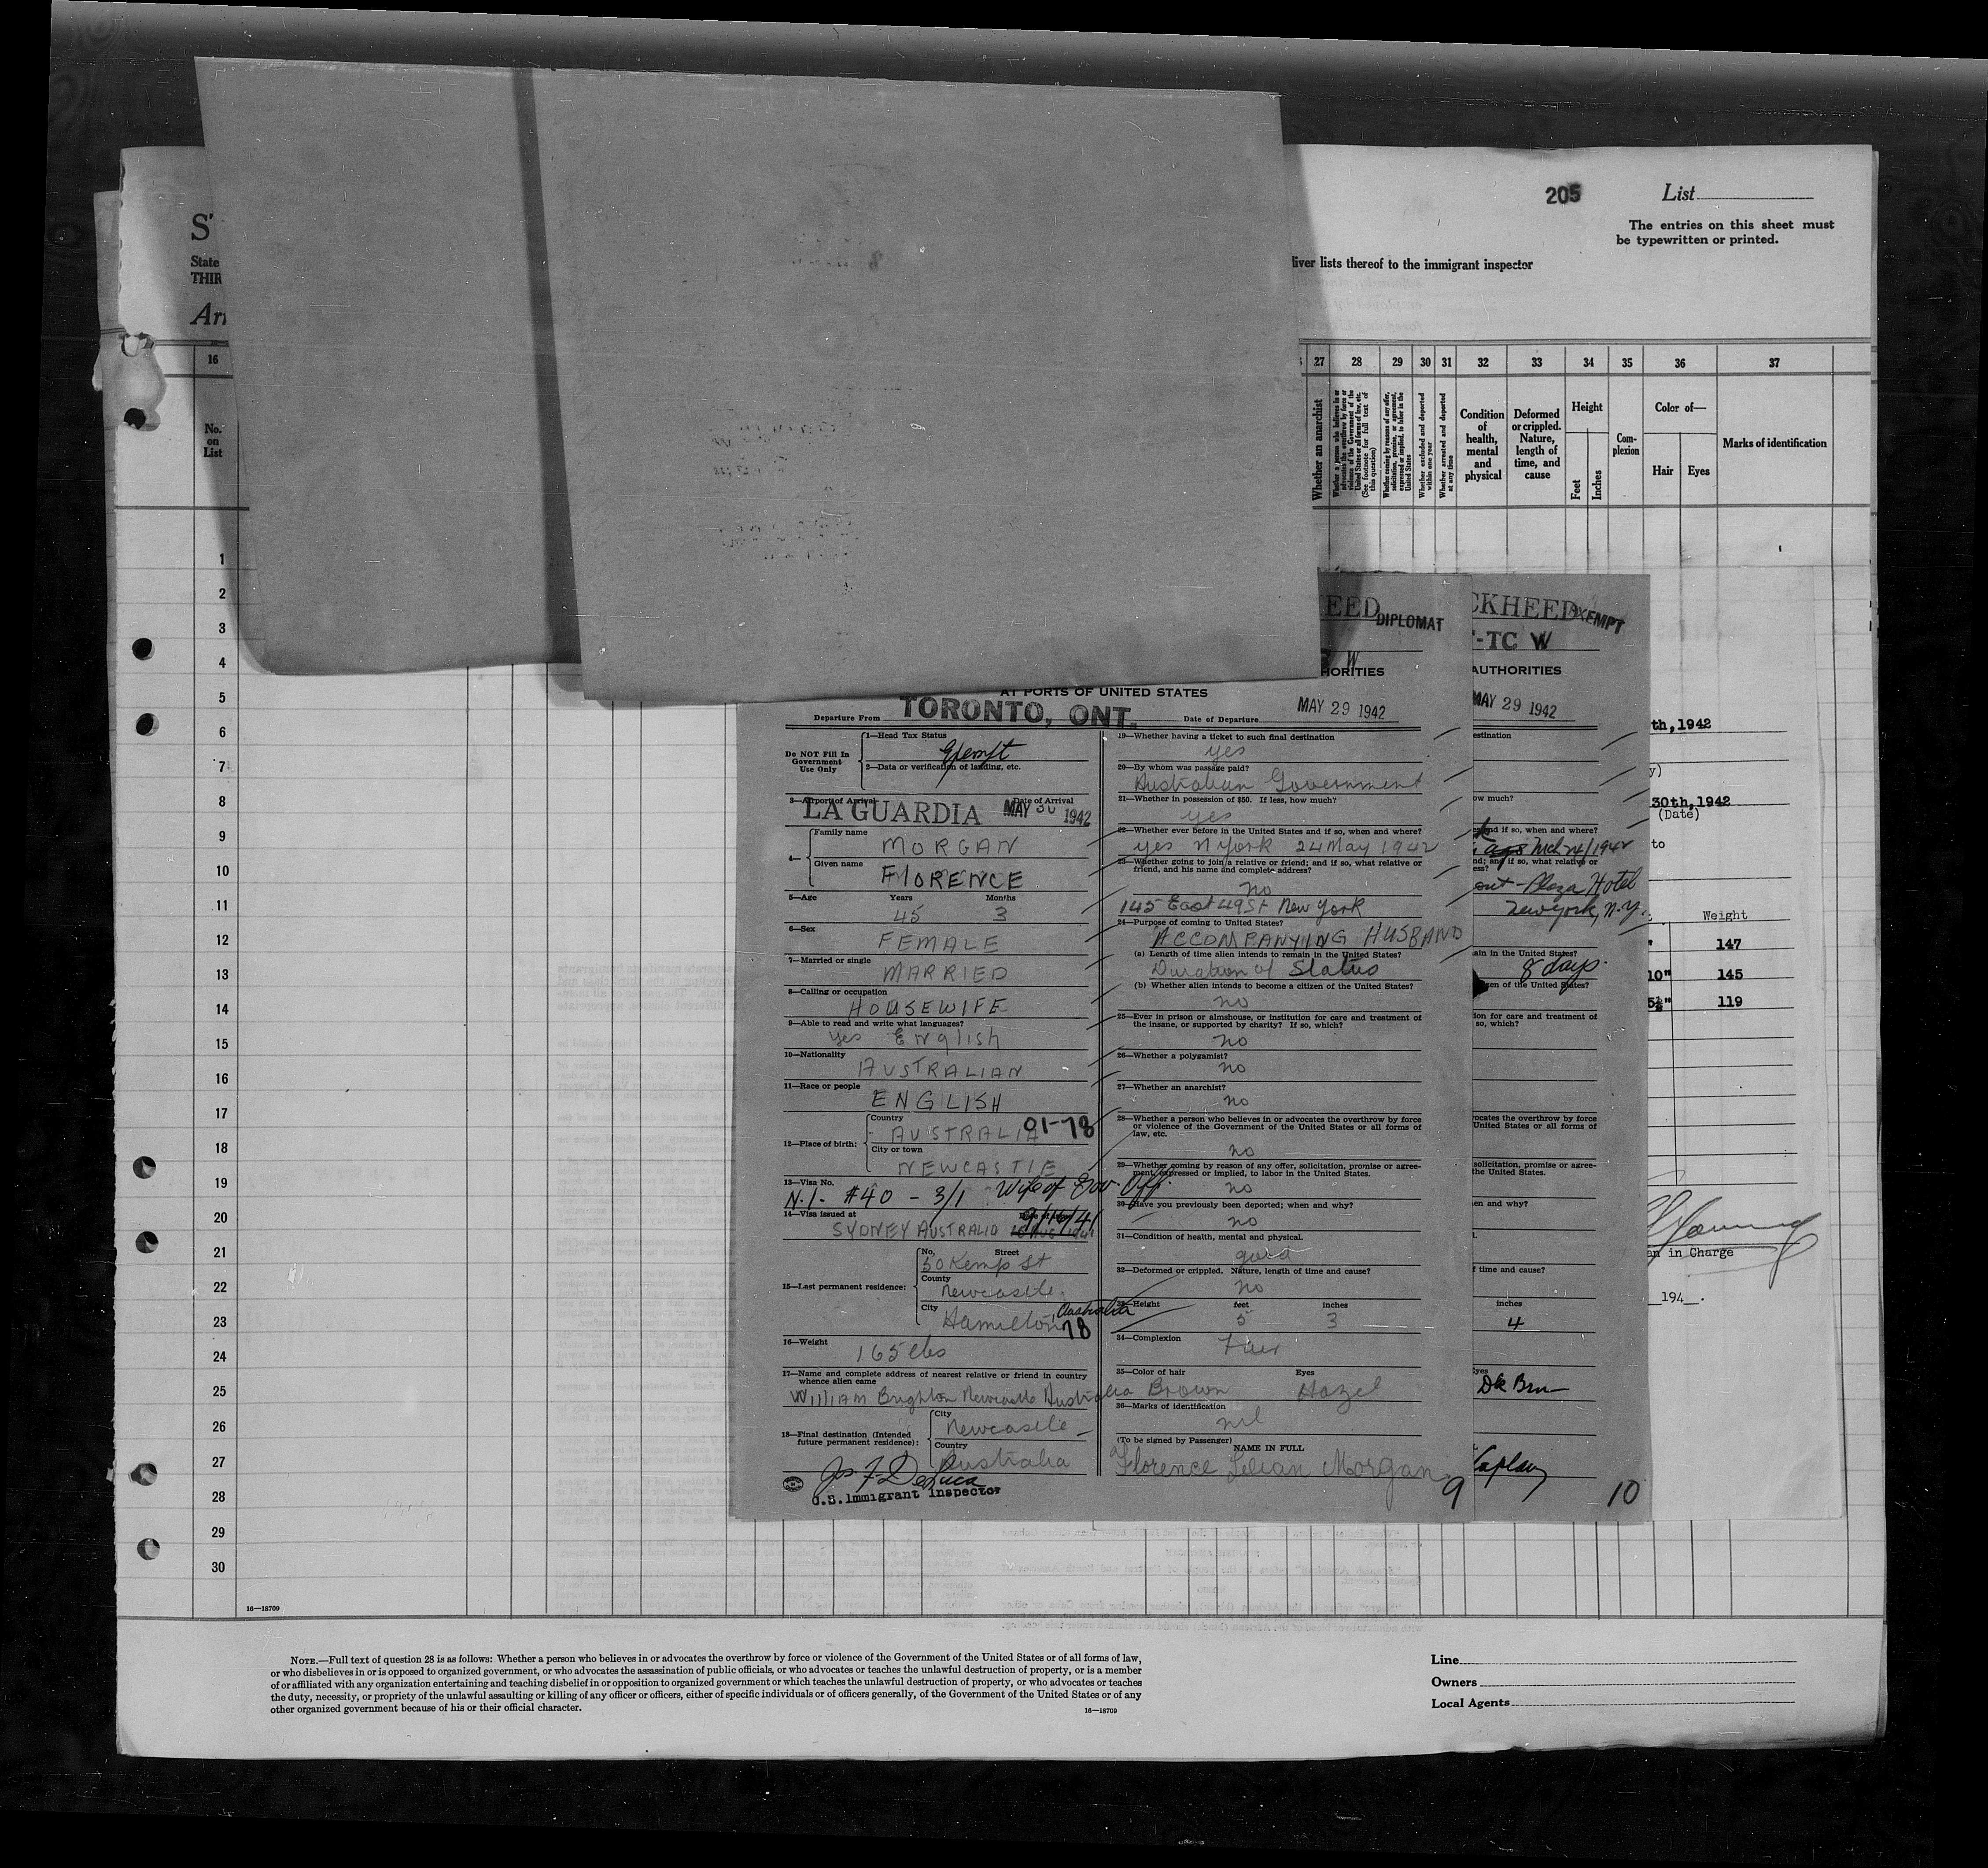 205 List
The entries on this sheet must
be typewritten or printed.
S'
State
THIR
liver lists thereof to the immigrant inspector
Arr
16
27 28 29 30 31 32 33 34 35 36 37
No.
on
List
Whether an anarchist
Whether a person who believes in or advocates the overthrow by force or violence of the Government of the United States or all forms of law, etc. (See footnote for full text of this question)
Whether coming by reasons of any offer, solicitation, promise, or agreement, expressed or implied, to labor in the United States
Whether excluded and deported within one year
Whether arrested and deported at any time
Condition of health, mental and physical
Deformed or crippled. Nature, length of time, and cause
Height
Feet
Inches
Com-
plexion
Color of—
Hair
Eyes
Marks of identification
1
2
3
4
5
6
7
8
9
10
11
12
13
14
15
16
17
18
19
20
21
22
23
24
25
26
27
28
29
30
EED
DIPLOMAT
W
HORITIES
AT PORTS OF UNITED STATES
Departure From TORONTO, ONT. Date of Departure MAY 29 1942
Do NOT Fill In
Government
Use Only
1—Head Tax Status
Exempt
2—Data or verification of landing, etc.
3—Airport of Arrival Date of Arrival
LA GUARDIA MAY 30 1942
4—
Family name
MORGAN
Given name
FLORENCE
5—Age Years Months
45 3
6—Sex
FEMALE
7—Married or single
MARRIED
8—Calling or occupation
HOUSEWIFE
9—Able to read and write what languages?
yes English
10—Nationality
AUSTRALIAN
11—Race or people
ENGLISH
12—Place of birth:
Country
AUSTRALIA 01-78
City or town
NEWCASTLE
13—Visa No.
N.I. #40 - 3/1 Wife of Gov. Off.
14—Visa issued at
SYDNEY AUSTRALIA 9/16/41
15—Last permanent residence:
No. Street
50 Kemp St
County
Newcastle
City
Hamilton Australia
78
16—Weight
165 lbs
17—Name and complete address of nearest relative or friend in country
whence alien came
William Brighton Newcastle Australia
18—Final destination (Intended
future permanent residence):
City
Newcastle
Country
Australia
Jos F DeLuca
U.S. Immigrant Inspector
19—Whether having a ticket to such final destination
yes
20—By whom was passage paid?
Australian Government
21—Whether in possession of $50. If less, how much?
yes
22—Whether ever before in the United States and if so, when and where?
yes N York 24 May 1942
23—Whether going to join a relative or friend; and if so, what relative or
friend, and his name and complete address?
no
145 East 49 St New York
24—Purpose of coming to United States?
ACCOMPANYING HUSBAND
(a) Length of time alien intends to remain in the United States?
Duration of Status
(b) Whether alien intends to become a citizen of the United States?
no
25—Ever in prison or almshouse, or institution for care and treatment of
the insane, or supported by charity? If so, which?
no
26—Whether a polygamist?
no
27—Whether an anarchist?
no
28—Whether a person who believes in or advocates the overthrow by force
or violence of the Government of the United States or all forms of
law, etc.
no
29—Whether coming by reason of any offer, solicitation, promise or agree-
ment, expressed or implied, to labor in the United States.
no
30—Have you previously been deported; when and why?
no
31—Condition of health, mental and physical.
good
32—Deformed or crippled. Nature, length of time and cause?
no
33—Height feet inches
5 3
34—Complexion
Fair
35—Color of hair Eyes
Brown Hazel
36—Marks of identification
nil
(To be signed by Passenger)
NAME IN FULL
Florence Lilian Morgan
9
CKHEED
EXEMPT
-TC W
AUTHORITIES
MAY 29 1942
estination
ow much?
and if so, when and where?
Mch 24/1942
nd; and if so, what relative or
ess?
Plaza Hotel
New York, N.Y.
ain in the United States?
8 days.
zen of the United States?
ion for care and treatment of
so, which?
vocates the overthrow by force
United States or all forms of
solicitation, promise or agree-
the United States.
en and why?
f time and cause?
inches
4
Eyes
Dk Brn
Kaplan
10
th, 1942
y)
30th, 1942
(Date)
to
Weight
" 147
10" 145
5½" 119
an in Charge
194 .
16—18709
NOTE.—Full text of question 28 is as follows: Whether a person who believes in or advocates the overthrow by force or violence of the Government of the United States or of all forms of law,
or who disbelieves in or is opposed to organized government, or who advocates the assassination of public officials, or who advocates or teaches the unlawful destruction of property, or is a member
of or affiliated with any organization entertaining and teaching disbelief in or opposition to organized government or which teaches the unlawful destruction of property, or who advocates or teaches
the duty, necessity, or propriety of the unlawful assaulting or killing of any officer or officers, either of specific individuals or of officers generally, of the Government of the United States or of any
other organized government because of his or their official character.
16—18709
Line
Owners
Local Agents